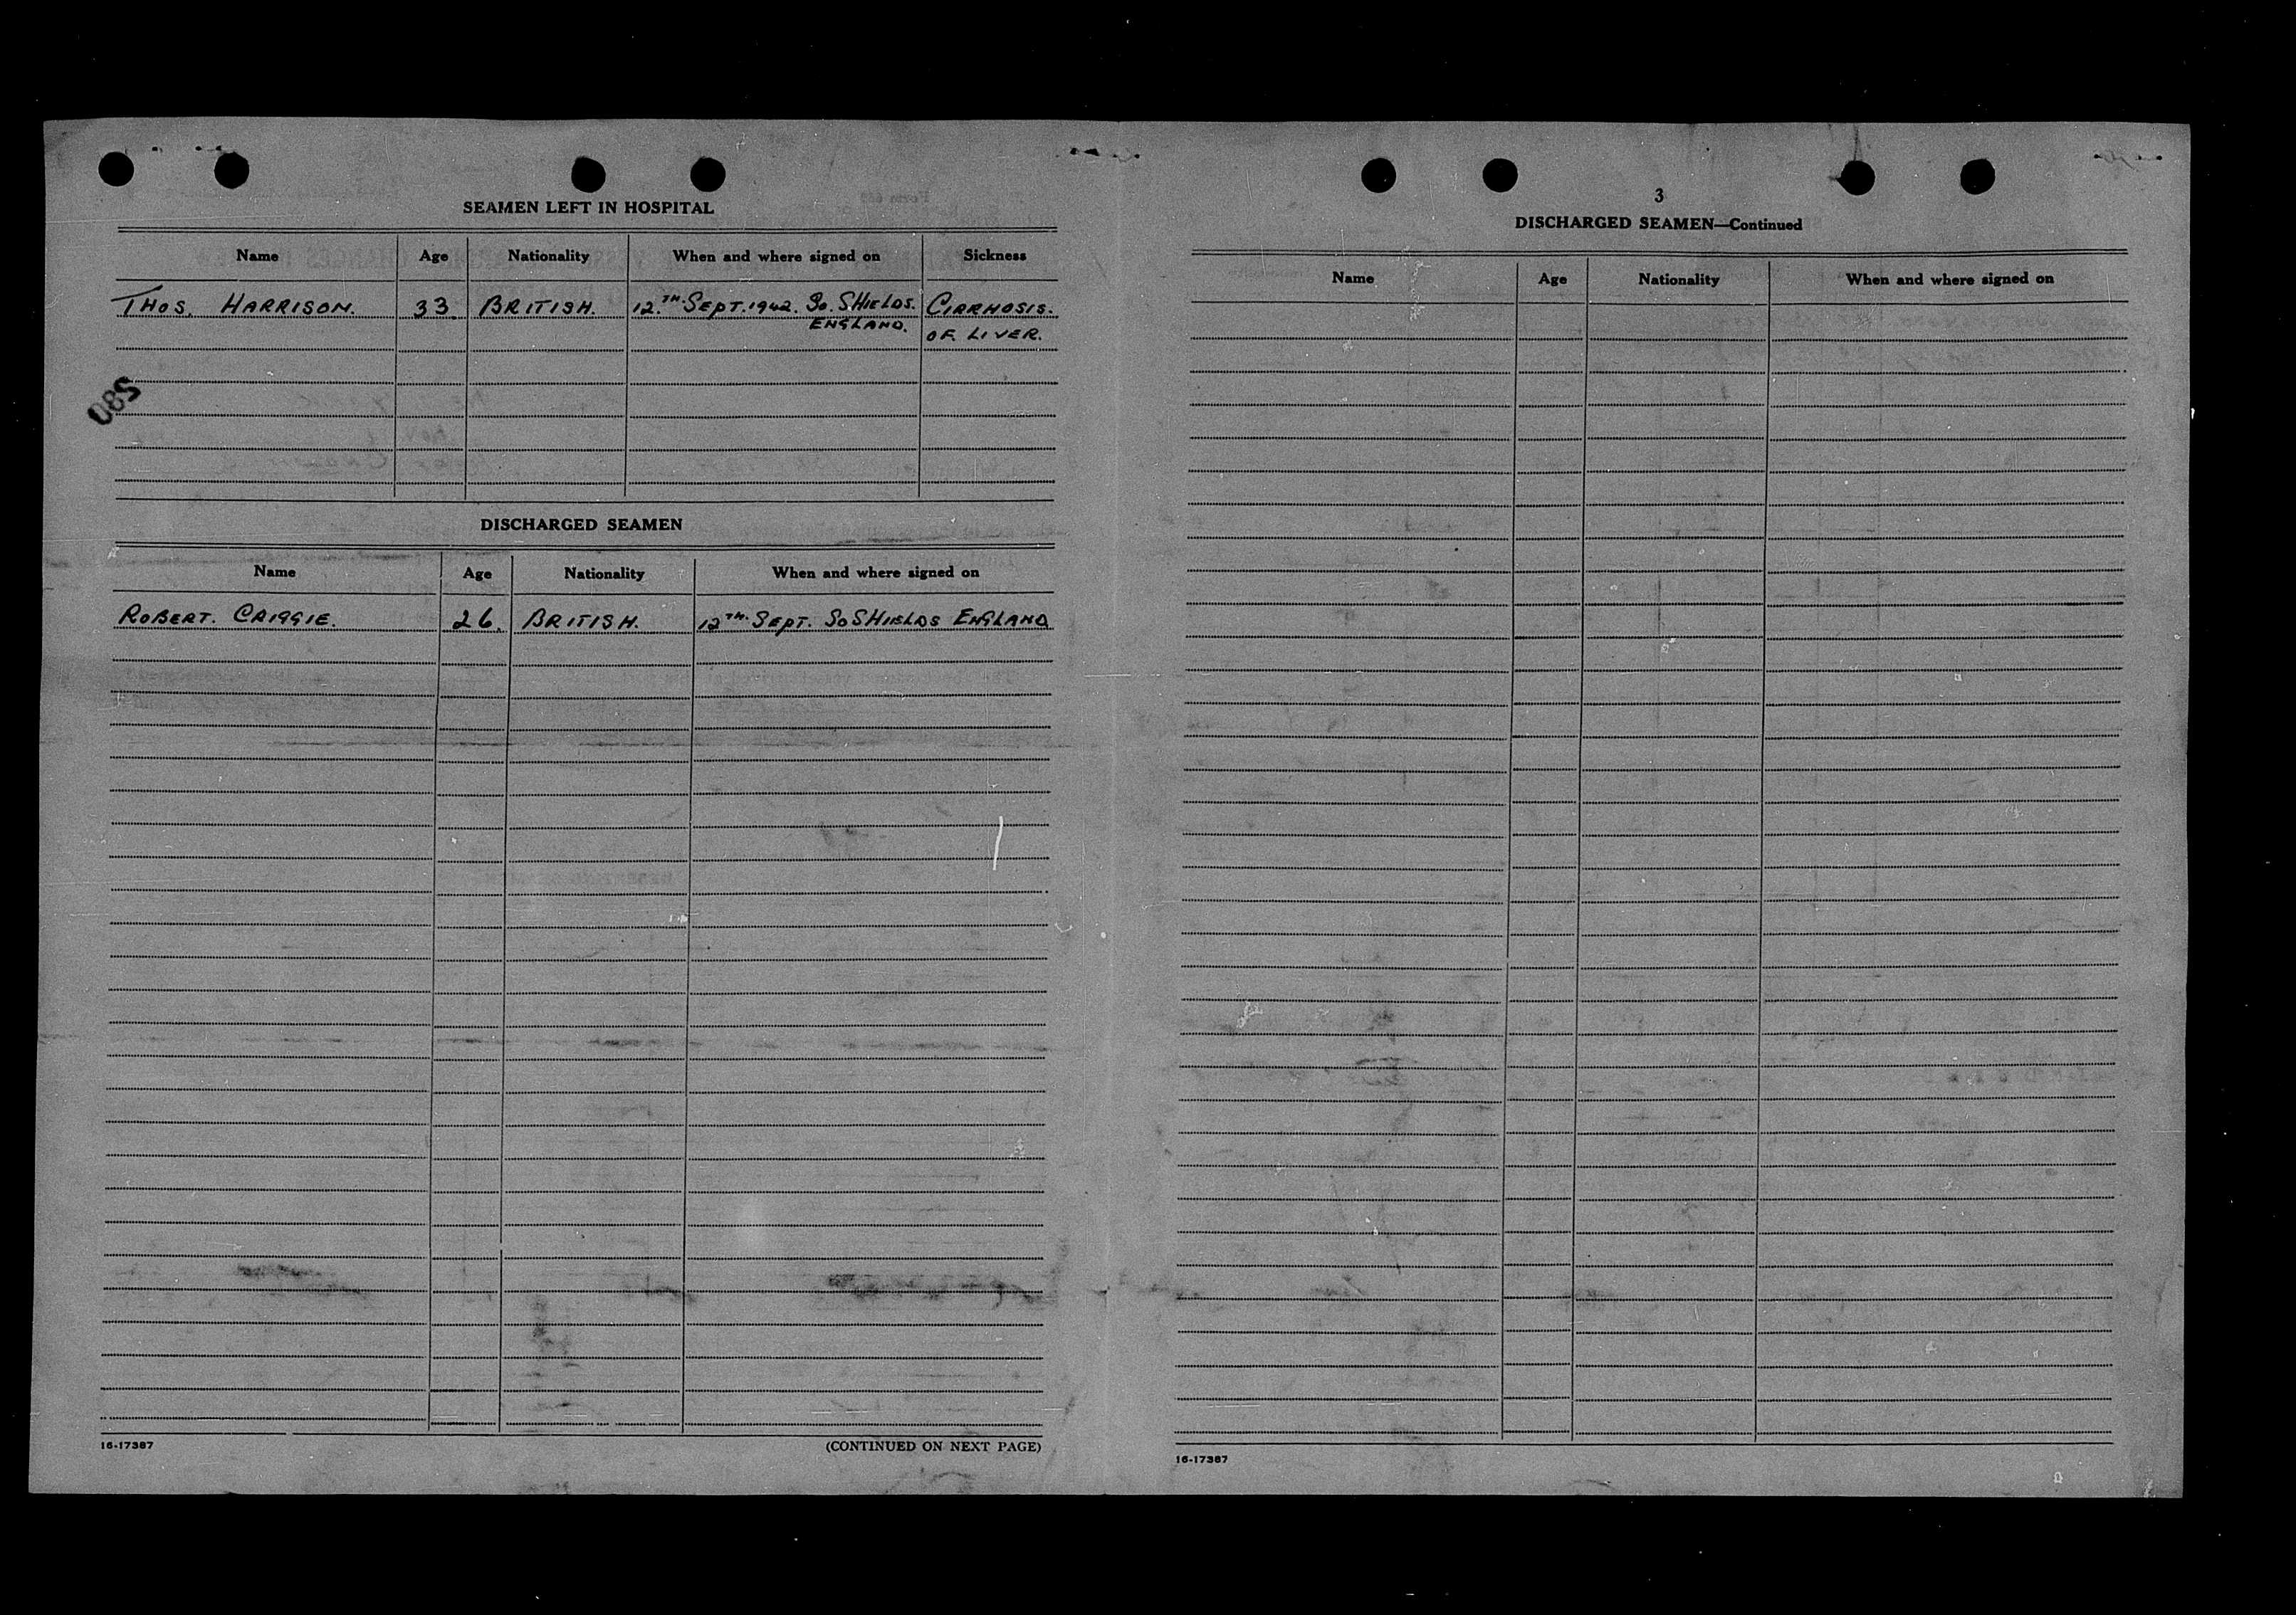 SEAMEN LEFT IN HOSPITAL
Name Age Nationality When and where signed on Sickness
THOS. HARRISON. 33. BRITISH. 12.TH SEPT. 1942. SO. SHIELDS. CIRRHOSIS.
ENGLAND. OF LIVER.
580
DISCHARGED SEAMEN
Name Age Nationality When and where signed on
ROBERT. CRIGGIE. 26. BRITISH. 12TH. SEPT. SO SHIELDS ENGLAND
16-17387 (CONTINUED ON NEXT PAGE)
3
DISCHARGED SEAMEN—Continued
Name Age Nationality When and where signed on
16-17387